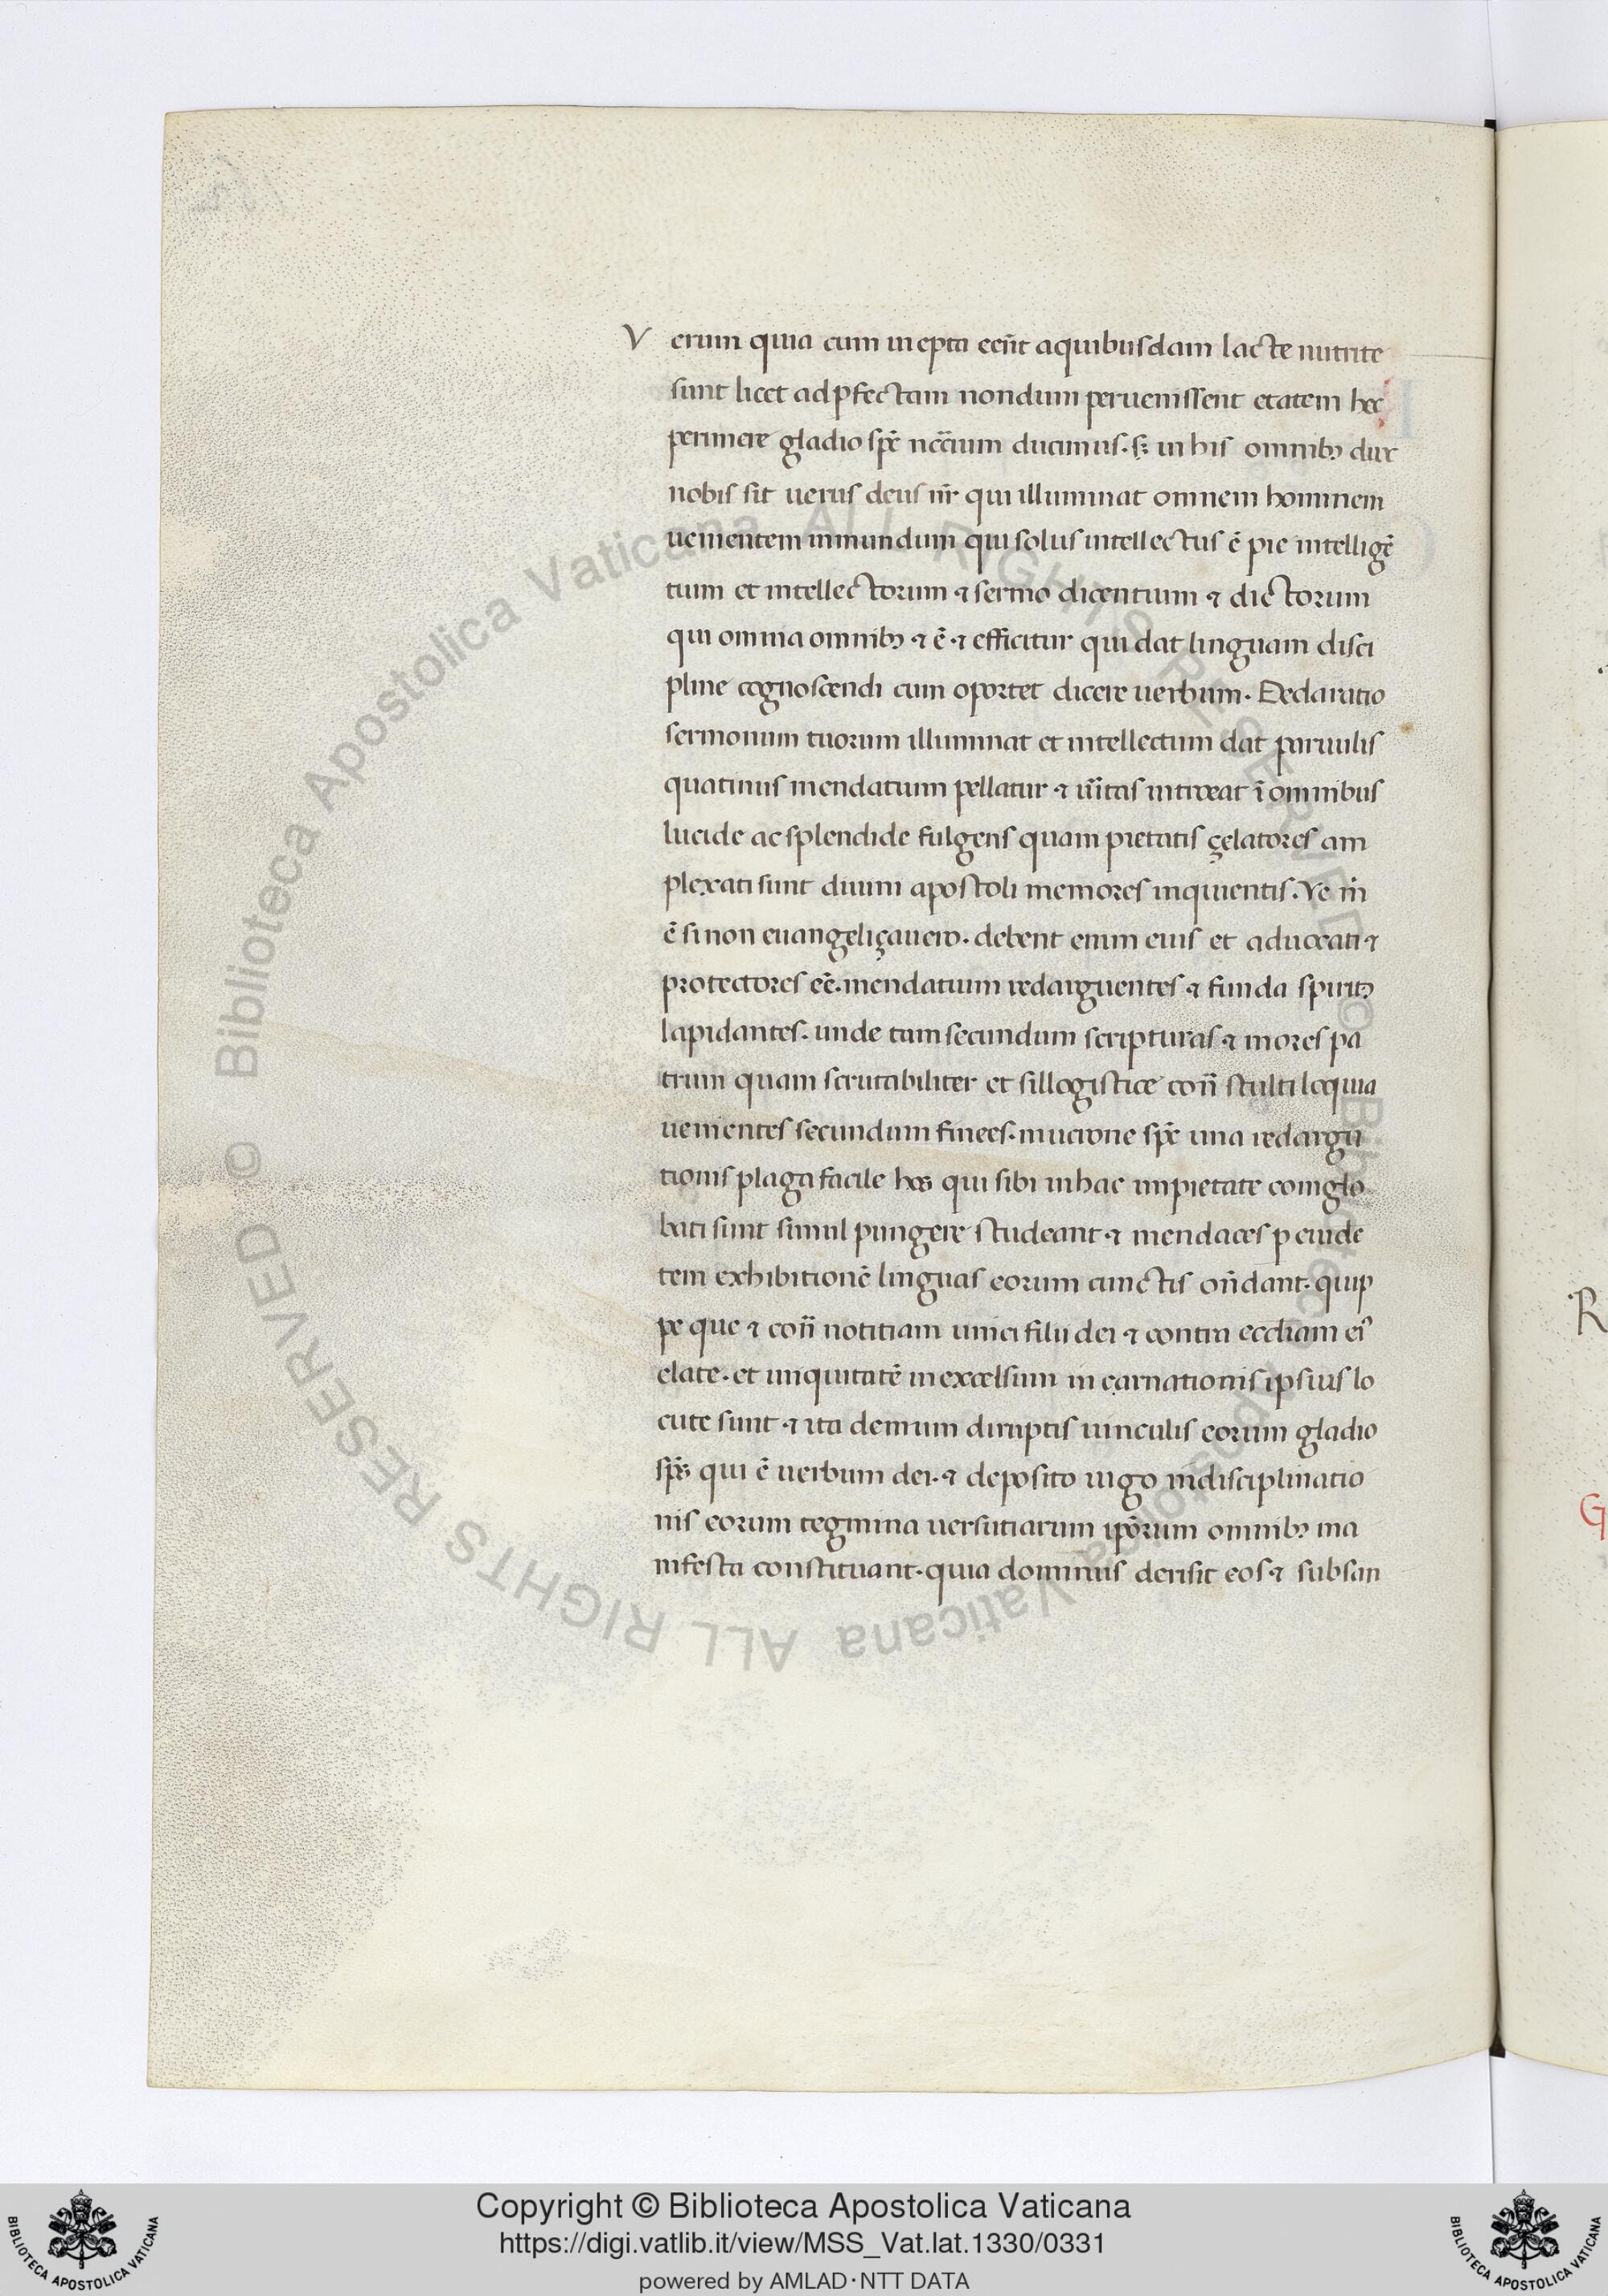 Verum quia cum inepta eēnt aquibusdam lacte nutrite
sunt licet ad pfectam nondum peruenissent etatem hec
perimere gladio sp̄c nc̄cium ducimus. s; in his omnibꝫ dux
nobis sit uerus deus nr̄ qui illuminat omnem hominem
uenientem inmundum qui solus intellectus ē pie intelligē
tium et intellectorum ⁊ sermo dicentium ⁊ dictorum
qui omnia omnibꝫ ⁊ ē ⁊ efficitur qui dat linguam disci
pline cognoscendi cum oportet dicere uerbum. Declaratio
sermonum tuorum illuminat et intellectum dat paruulis
quatinus mendatium pellatur ⁊ ūitas introeat ī omnibus
lucide ac splendide fulgens quam pietatis çelatores am
plexati sunt diuini apostoli memores inquientis. Ve m̄
ē si non euangeliçauero. debent enim eius et aduocati ⁊
protectores eē. mendatium redarguentes ⁊ funda spiritꝫ
lapidantes. unde tam secundum scripturas ⁊ mores pa
trum quam scrutabiliter et sillogistice con̄ stultiloquia
uenientes secundum finees. mucrone sp̄c una redargu
tionis plaga facile hos qui sibi inhac impietate conglo
bati sunt simul pungere studeant. ⁊ mendaces p euide
tem exhibitionē linguas eorum cunctis on̄dant. quip
pe que ⁊ con̄ notitiam unici filii dei ⁊ contra ecc̄liam ei᾽
elate. et iniquitatē inexcelsum incarnationis ipsius lo
cute sunt ⁊ ita demum diruptis uinculis eorum gladio
sp̄s qui ē uerbum dei. ⁊ deposito iugo indisciplinatio
nis eorum tegmina uersutiarum ip̄orum omnibꝫ ma
nifesta constituant. quia dominus derisit eos ⁊ subsan
R
G
© Biblioteca Apostolica Vaticana ALL RIGHTS RESERVED © Biblioteca Apostolica Vaticana ALL RIGHTS RESERVED
Copyright © Biblioteca Apostolica Vaticana
https://digi.vatlib.it/view/MSS_Vat.lat.1330/0331
powered by AMLAD·NTT DATA
BIBLIOTECA APOSTOLICA VATICANA
BIBLIOTECA APOSTOLICA VATICANA